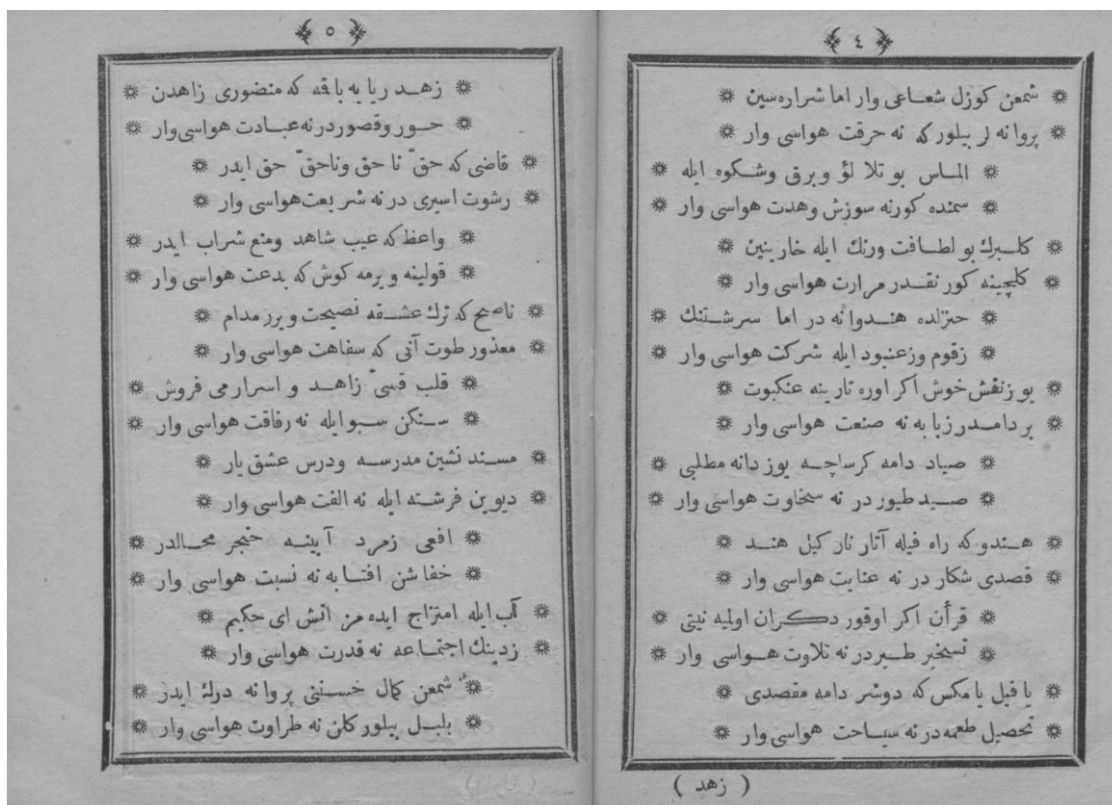 ٤
شمعن كوزل شعاعى وار اما شراره سين
پروانه لر بيلور كه نه حرقت هواسى وار
الماس بو تلا لؤ و برق وشكوه ايله
سمنده كورنه سوزش وهدت هواسى وار
كلبرك بو لطافت ورنك ايله خارينين
كلچينه كور نقدر مرارت هواسى وار
هندوانه در اما سرشتنك
زقوم وزعنبود ايله شركت هواسى وار
خوش اكر اوره تارينه عنكبوت
بر دامدر زبابه نه صنعت هواسى وار
صياد دامه كرساچه يوز دانه مطلبى
صيد طيور در نه سخاوت هواسى وار
هندو كه راه فيله آتار ناركيل هند
قصدى شكار در نه عنايت هواسى وار
قرأن اكر اوقور دكران اوليه نيتى
تسخير طير در نه تلاوت هواسى وار
يا فيل يا مكس كه دوشر دامه مقصدى
تحصيل طعمه در نه سياحت هواسى وار
( زهد )
٥
زهد ريايه باقه كه منضورى زاهدن
حور وقصور در نه عبادت هواسى وار
قاضى كه حقّ نا حق وناحقّ حق ايدر
رشوت اسيرى در نه شريعت هواسى وار
واعظ كه عيب شاهد ومنع شراب ايدر
قولينه ويرمه كوش كه بدعت هواسى وار
ناصح كه ترك عشقه نصيحت ويرر مدام
معذور طوت آنى كه سفاهت هواسى وار
قلب قسىّ زاهد و اسرار مى فروش
سنكن سبو ايله نه رفاقت هواسى وار
مسند نشين مدرسه ودرس عشق يار
ديوين فرشته ايله نه الفت هواسى وار
افعى زمرد آيينه خنجر محالدر
خفاشن افتابه نه نسبت هواسى وار
آب ايله امتزاج ايده مز اتش اى حكيم
زدينك اجتماعه نه قدرت هواسى وار
شمعن كمال خسنتى پروانه درك ايدر
بلبل بيلور كلن نه طراوت هواسى وار